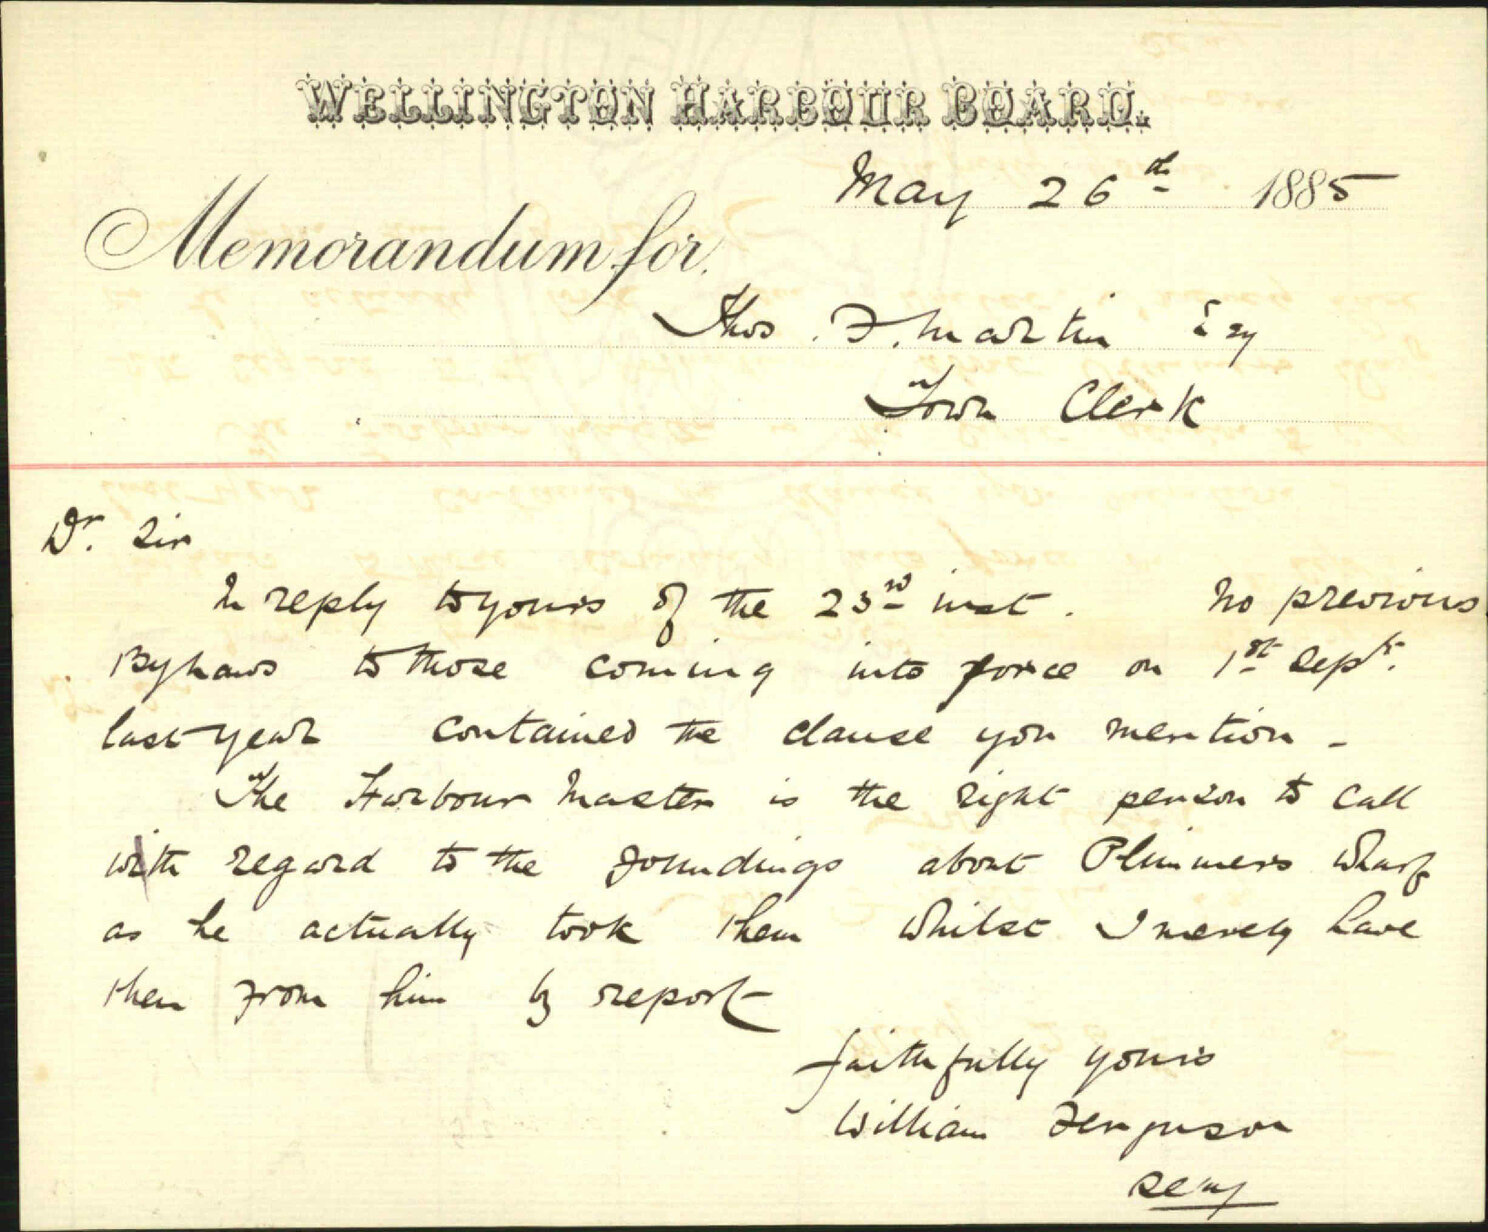 WELLINGTON HARBOUR BOARD.
May 26th 1885
Memorandum for
Thos. F. Martin Esq
Town Clerk
Dr. Sir
In reply to yours of the 23rd inst. No previous
Byhaws to those coming into force on 1st Sept.
last year contained the clause you mention -
The Harbour Master is the right person to call
with regard to the soundings about Plimmers Wharf
as he actually took them whilst I merely have
them from him by report
faithfully yours
William Ferguson
Secy